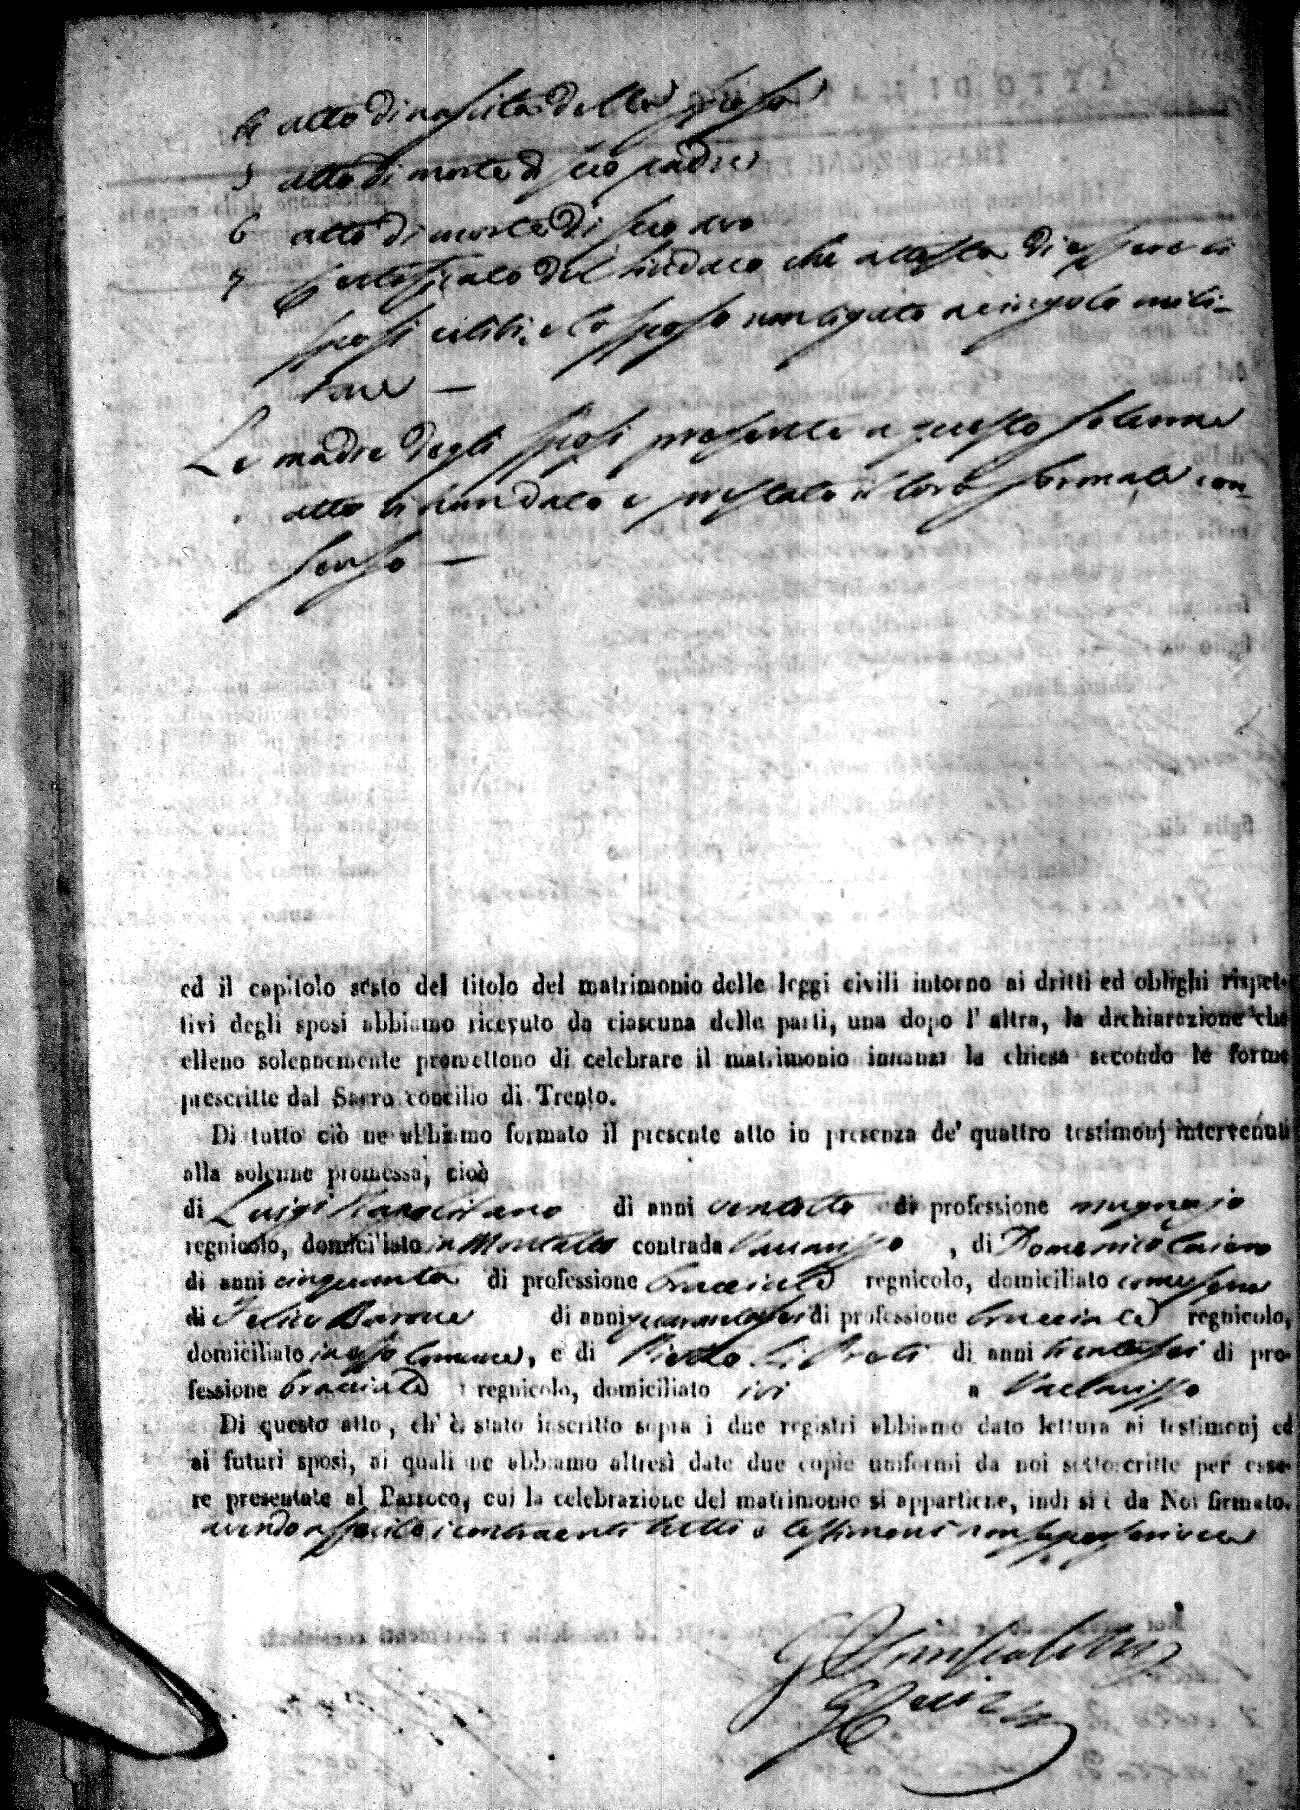 4 atto di nascita della sposa
5 atto di morte di suo padre
6 atto di morte di suo avo
7 Certificato del Sindaco che attesta di essere i
sposi celibi, e lo sposo non ligato a cingolo mili-
tare —
Le madre degli sposi presente a questo solenne
atto di han dato e prestato il loro formale con-
senso —
ed il capitolo sesto del titolo del matrimonio delle leggi civili intorno ai dritti ed obblighi rispet-
tivi degli sposi abbiamo ricevuto da ciascuna delle parti, una dopo l' altra, la dichiarazione che
elleno solennemente promettono di celebrare il matrimonio innanzi la chiesa secondo le forme
prescritte dal Sacro concilio di Trento.
Di tutto ciò ne abbiamo formato il presente atto in presenza de' quattro testimonj intervenuti
alla solenne promessa, cioè
di Luigi Napolitano di anni ventotto di professione mugnajo
regnicolo, domiciliato in Montalto contrada Vaccarisso , di Domenico
di anni cinquanta di professione bracciale regnicolo, domiciliato come sopra
di Felice Barone di anni quarantasei di professione bracciale regnicolo,
domiciliato in esso Comune, e di Pietro di anni trentasei di pro-
fessione bracciale regnicolo, domiciliato ivi a Vaccarisso
Di questo atto, ch' è stato inscritto sopra i due registri abbiamo dato lettura ai testimonj ed
ai futuri sposi, ai quali ne abbiamo altresì date due copie uniformi da noi sottoscritte per esse-
re presentate al Parroco, cui la celebrazione del matrimonio si appartiene, indi si è da Noi firmato.
avendo asserito i contraenti tutti e testimoni non saper scrivere